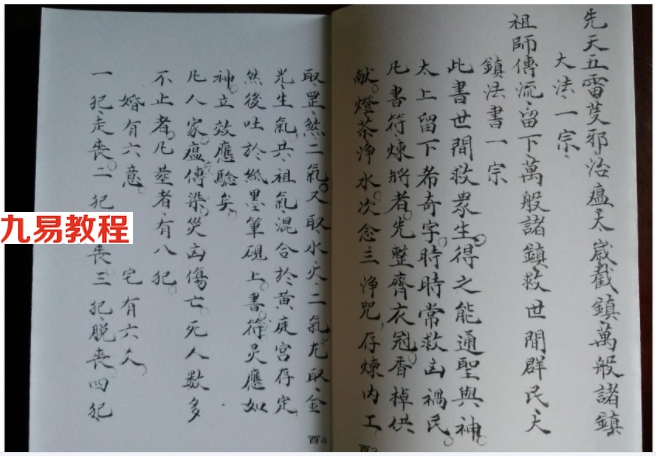 先天五雷斩邪治瘟天嵗截鎮萬般諸鎮
大法一宗
祖師傳流留下萬般諸鎮救世間群民大
鎮法書一宗
此書世間救眾生得之能通聖與神
太上留下希奇字時時常救凶禍民
凡書符煉將者先整齊衣冠香棹供
献燈茶净水次念三净咒存煉内工
取罡煞二氣又取水火二氣尤取金
光生氣共祖氣混合於黄庭宮存定
然後吐於紙墨筆硯上書符灵應如
神立效應驗矣
凡人家瘟傳染災凶傷亡死人数多
不止者凡塟者有八犯
婚有六意 宅有六久
一犯走丧二犯 丧三犯脱丧四犯
九易教程